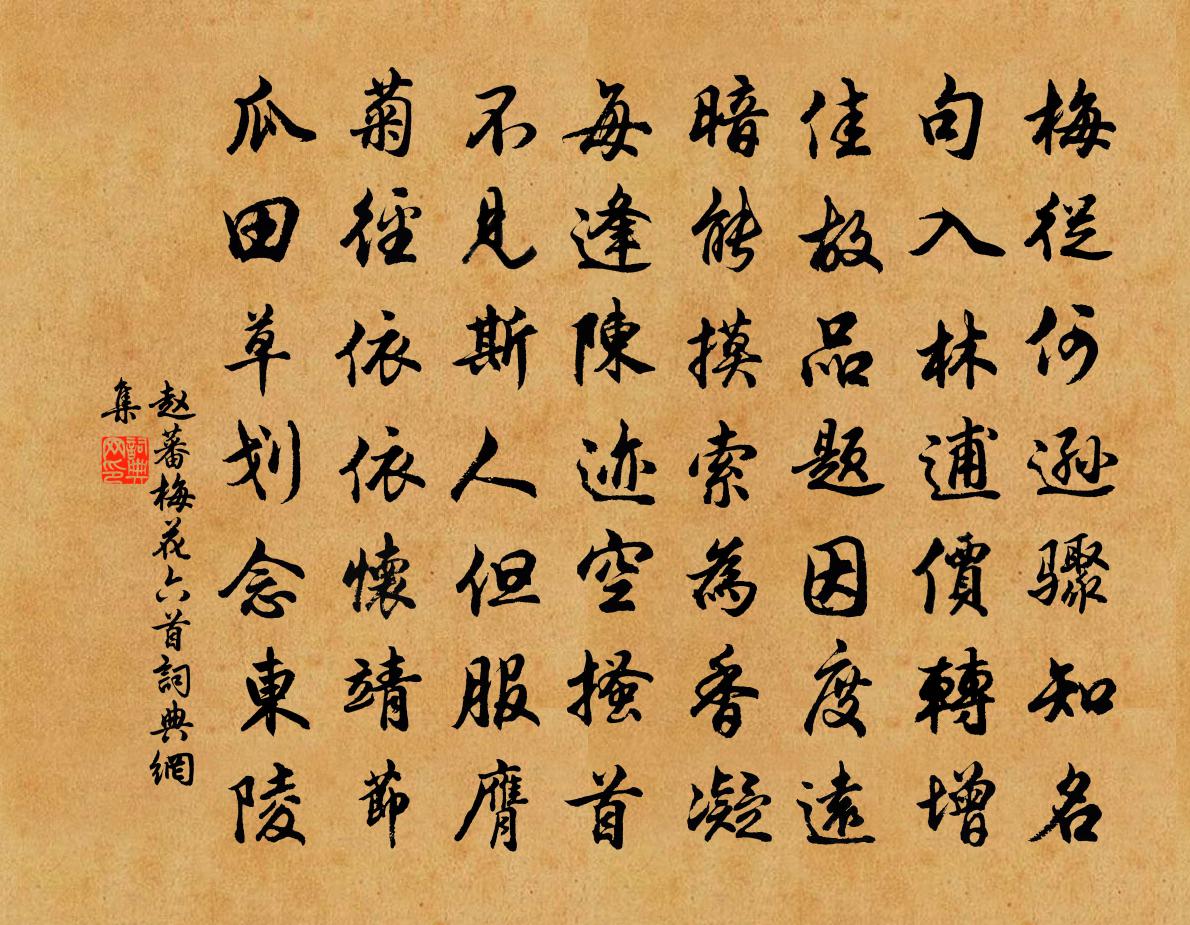 梅從何遜驟知名
句入林逋價轉增
佳故品题因度遠
暗能摸索為香凝
每逢陳迹空搔首
不見斯人但服膺
菊徑依依懷靖節
瓜田草划念東陵
赵蕃梅花六首詞典網
集
詞典網印